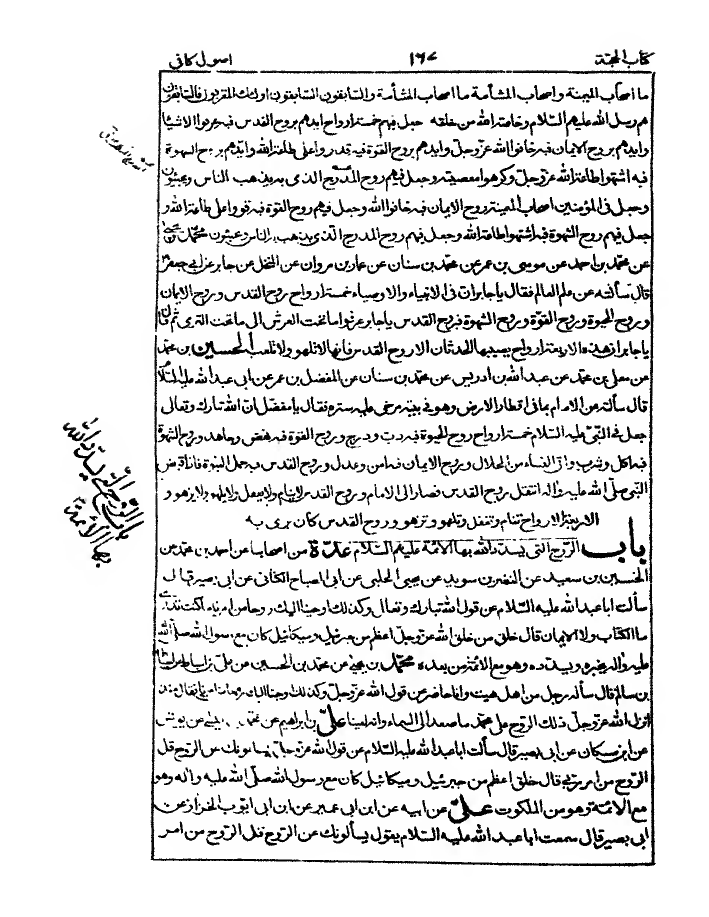 كتاب الحجة ١٦٧ اصول كافى
ما اصحاب الميمنة واصحاب المشأمة ما اصحاب المشأمة والسابقون السابقون اولئك المقربون فالسابقون
هم رسل الله عليهم السلام وخاصة الله من خلقه جعل فيهم خمسة ارواح ايدهم بروح القدس فبه عرفوا الاشياء
وايدهم بروح الايمان فبه خافوا الله عز وجل وايدهم بروح القوة فبه قدروا على طاعة الله وايدهم بروح الشهوة
فبه اشتهوا طاعة الله عز وجل وكرهوا معصيته وجعل فيهم روح المدرج الذى به يذهب الناس ويجيئون
وجعل فى المؤمنين اصحاب الميمنة روح الايمان فبه خافوا الله وجعل فيهم روح القوة فبه قووا على طاعة الله و
جعل فيهم روح الشهوة فبه اشتهوا طاعة الله وجعل فيهم روح المدرج الذى يذهب به الناس ويجيئون محمد بن يحيى
عن محمد بن احمد عن موسى بن عمر عن محمد بن سنان عن عمار بن مروان عن المنخل عن جابر عن ابى جعفر
قال سألته عن علم العالم فقال يا جابر ان فى الانبياء والاوصياء خمسة ارواح روح القدس وروح الايمان
وروح الحيوة وروح القوة وروح الشهوة فبروح القدس يا جابر عرفوا ما تحت العرش الى ما تحت الثرى ثم قال
يا جابر ان هذه الاربعة ارواح يصيبها الحدثان الا روح القدس فانها لا تلهو ولا تلعب الحسين بن محمد
عن معلى بن محمد عن عبد الله بن ادريس عن محمد بن سنان عن المفضل بن عمر عن ابى عبد الله عليه السلام
قال سألته عن الامام بما فى اقطار الارض وهو فى بيته مرخى عليه ستره فقال يا مفضل ان الله تبارك وتعالى
جعل فى النبى عليه السلام خمسة ارواح روح الحيوة فبه دب ودرج وروح القوة فبه نهض وجاهد وروح الشهوة
فبه اكل وشرب واتى النساء من الحلال وروح الايمان فبه آمن وعدل وروح القدس فبه حمل النبوة فاذا قبض
النبى صلى الله عليه وآله انتقل روح القدس فصار الى الامام وروح القدس لا ينام ولا يغفل ولا يلهو ولا يزهو و
الاربعة الارواح تنام وتغفل وتلهو وتزهو وروح القدس كان يرى به
باب الروح التى يسدد الله بها الائمة عليهم السلام عدة من اصحابنا عن احمد بن محمد عن
الحسين بن سعيد عن النضر بن سويد عن يحيى الحلبى عن ابى الصباح الكنانى عن ابى بصير قال
سألت ابا عبد الله عليه السلام عن قول الله تبارك وتعالى وكذلك اوحينا اليك روحا من امرنا ما كنت تدرى
ما الكتاب ولا الايمان قال خلق من خلق الله عز وجل اعظم من جبرئيل وميكائيل كان مع رسول الله صلى الله
عليه وآله يخبره ويسدده وهو مع الائمة من بعده محمد بن يحيى عن محمد بن الحسين عن على بن اسباط عن اسباط
بن سالم قال سأله رجل من اهل هيت وانا حاضر عن قول الله عز وجل وكذلك اوحينا اليك روحا من امرنا فقال منذ
انزل الله عز وجل ذلك الروح على محمد ما صعد الى السماء وانه لفينا على بن ابراهيم عن محمد بن عيسى عن يونس
عن ابن مسكان عن ابى بصير قال سألت ابا عبد الله عليه السلام عن قول الله عز وجل يسألونك عن الروح قل
الروح من امر ربى قال خلق اعظم من جبرئيل وميكائيل كان مع رسول الله صلى الله عليه وآله وهو
مع الائمة وهو من الملكوت على عن ابيه عن ابن ابى عمير عن ابى ايوب الخزاز عن
ابى بصير قال سمعت ابا عبد الله عليه السلام يقول يسألونك عن الروح قل الروح من امر
باب الروح التى يسدد الله
بها الائمة